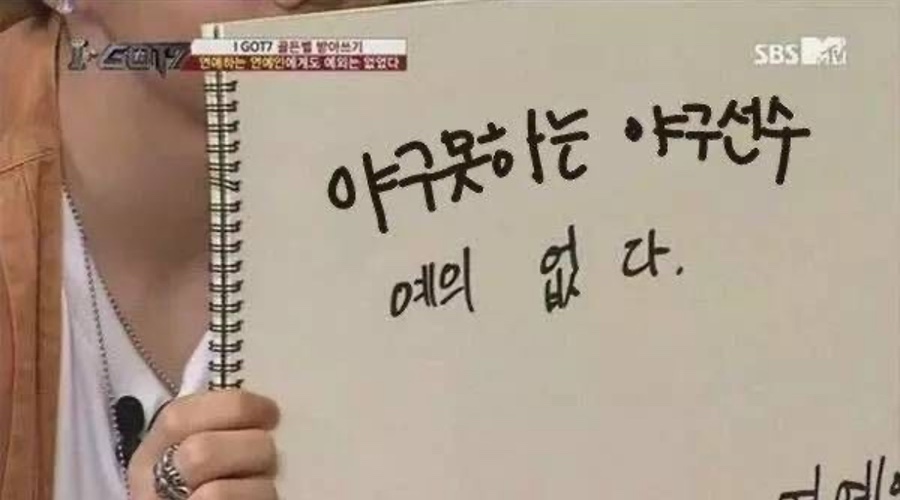 I GOT7
I GOT7 골든벨 받아쓰기
연애하는 연예인에게도 예외는 없었다
SBS MTV
야구못하는 야구선수
예의 없다.